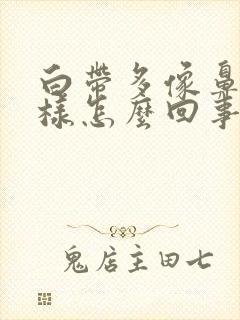 白帶多像鼻
樣怎麼回事
鬼店主田七